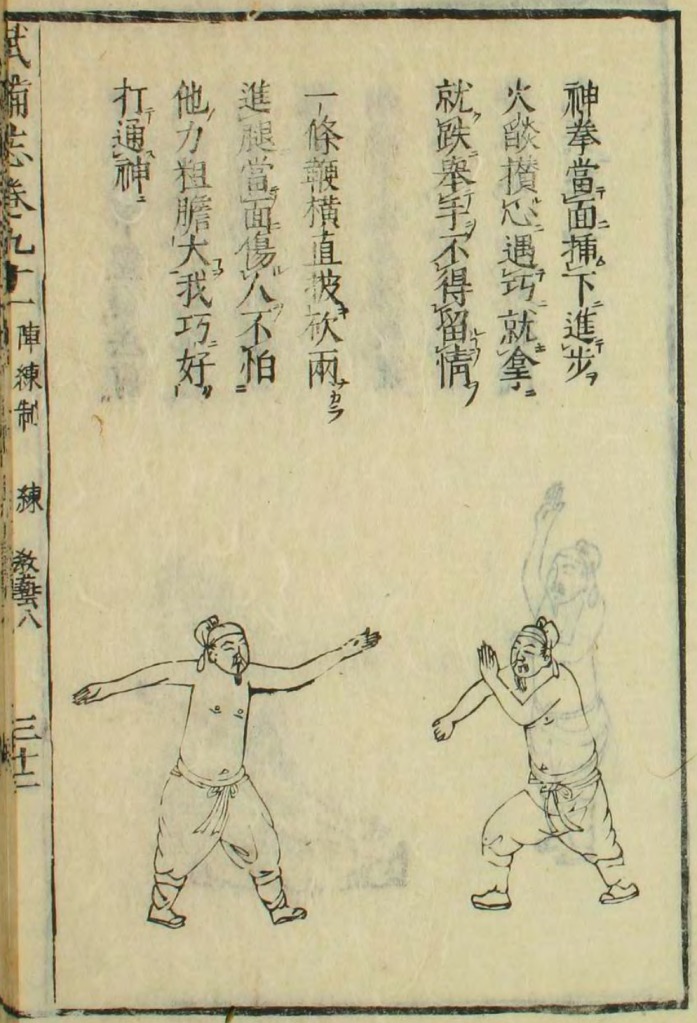 神拳當面插下進步
火燄攢心遇巧就拿
就跌舉手不得留情
一條鞭橫直披砍兩
進腿當面傷人不怕
他力粗膽大我巧好
打通神
武備志卷九十一 陣練制 練 教藝八 三十二